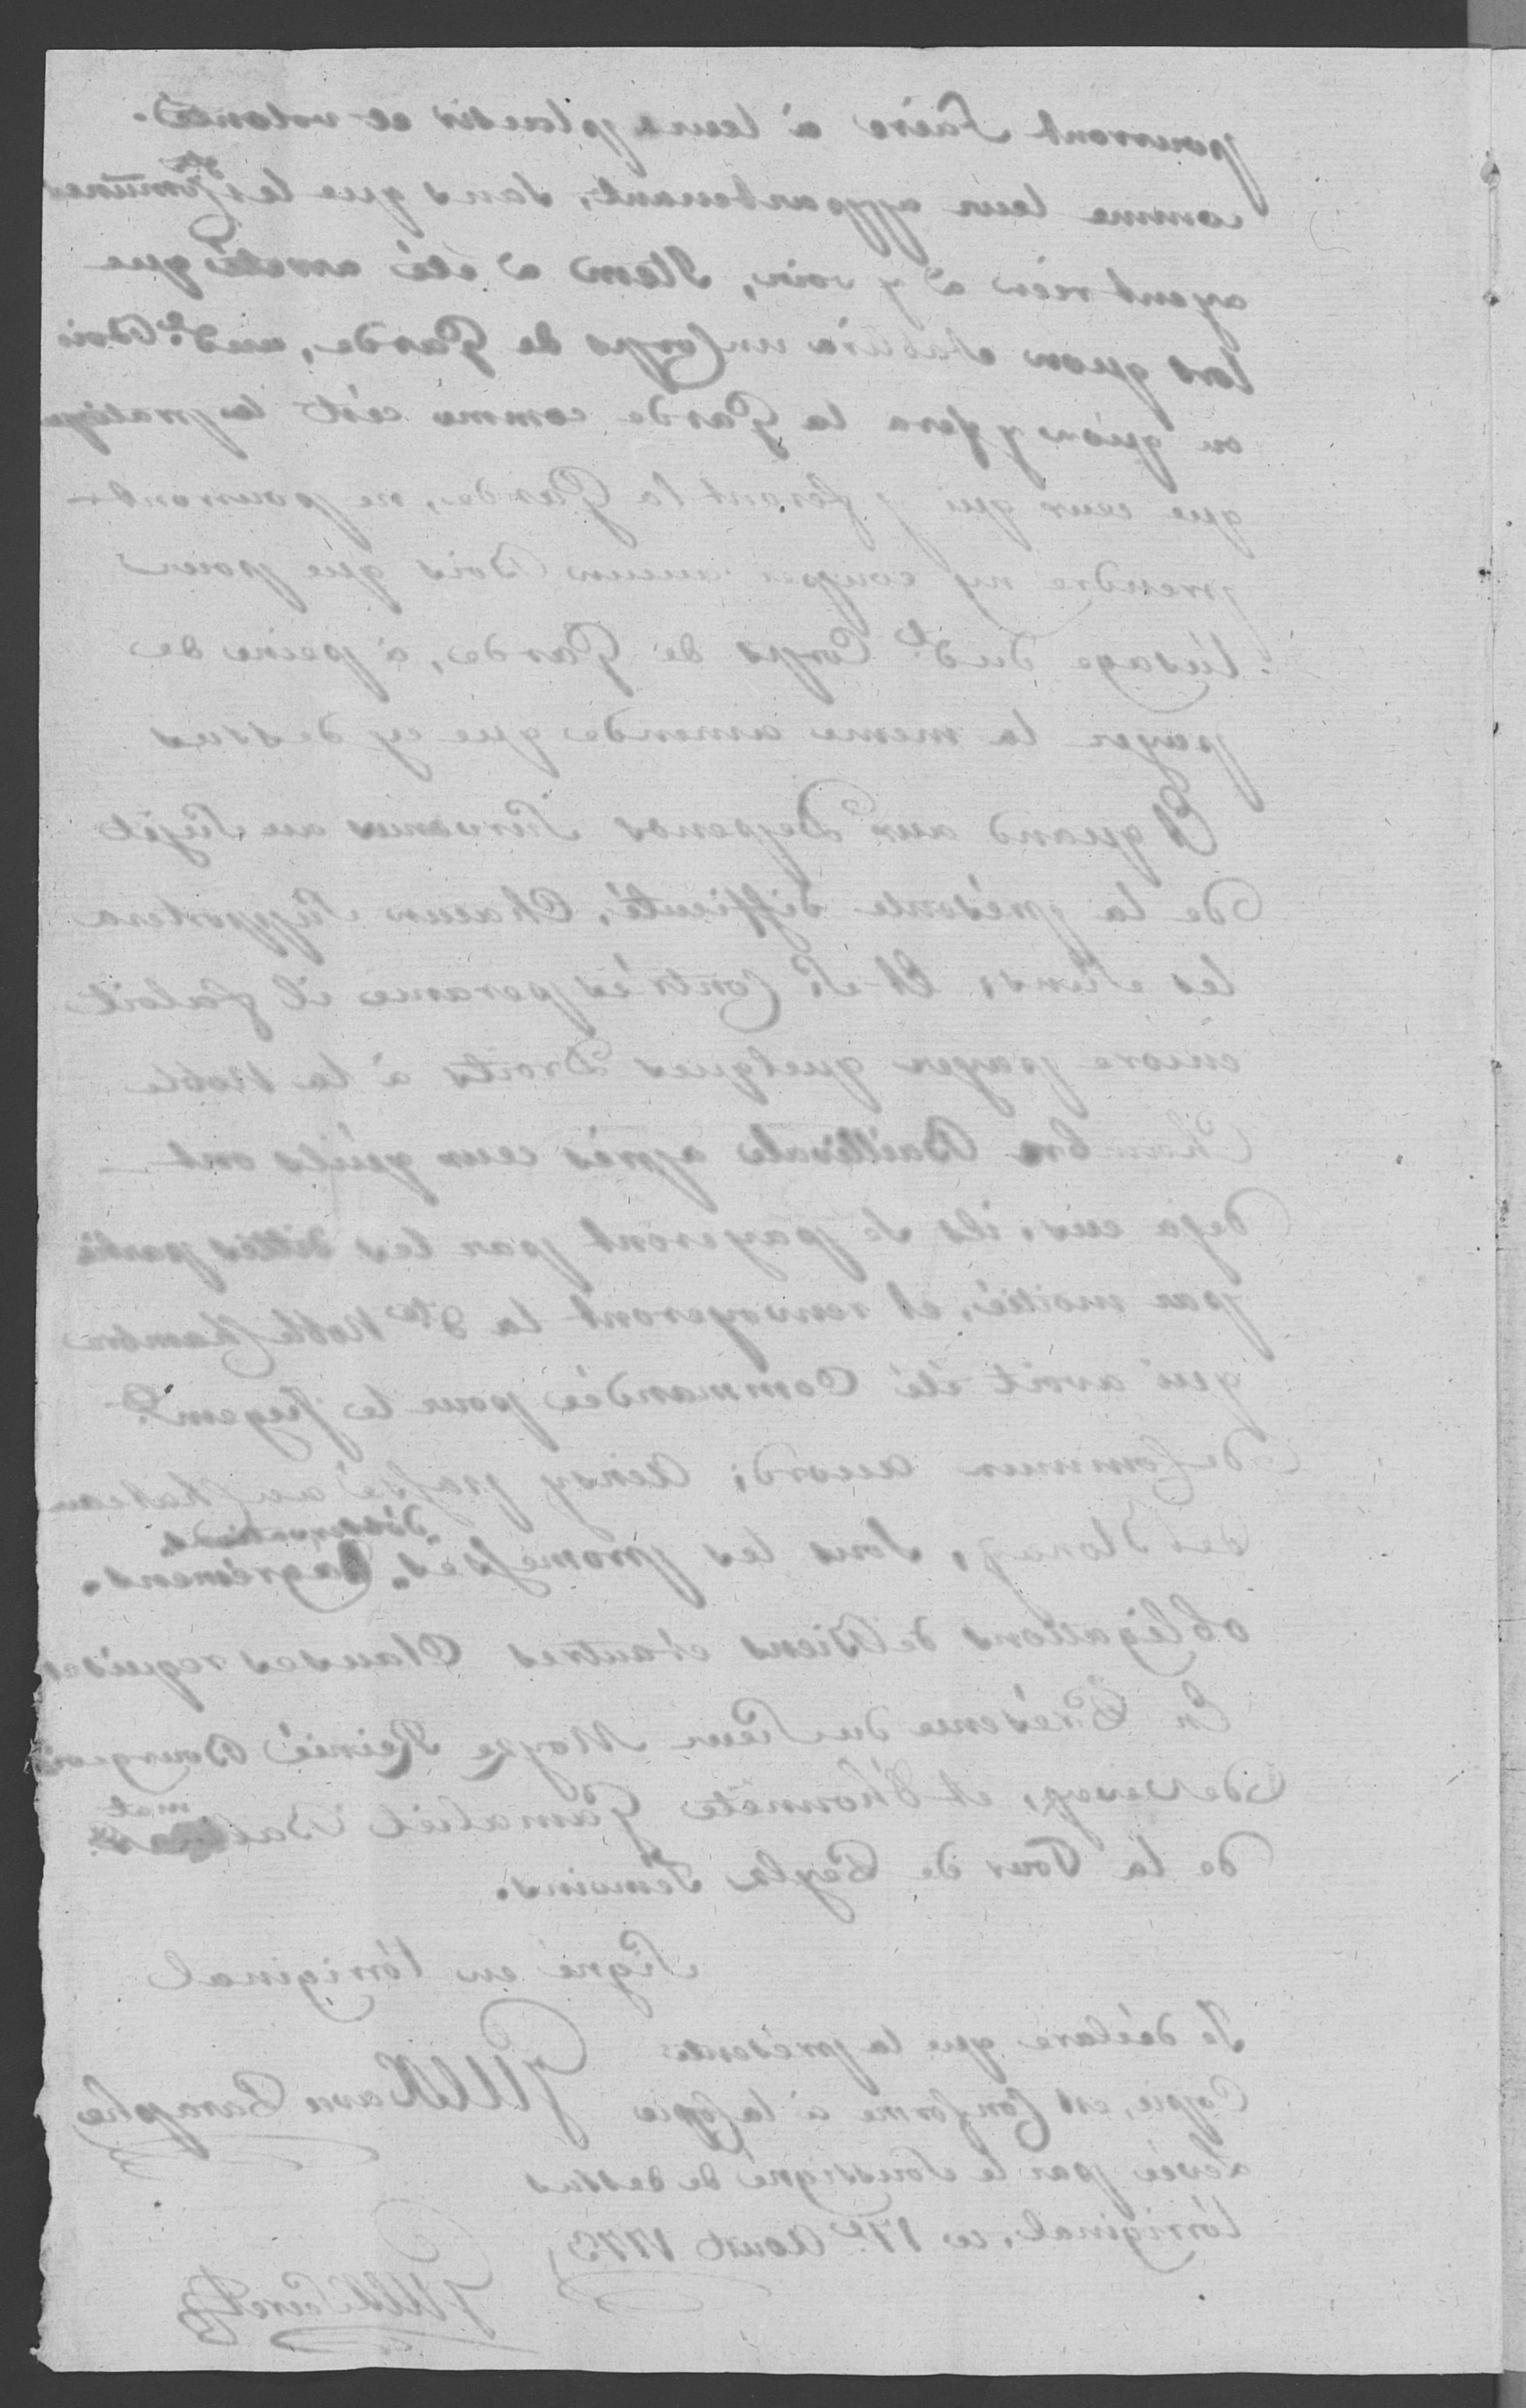 pourront faire à leurs plaisir et volonté.
comme leur appartenant, sans que les Comunes
ayent rien à y voir, Item a été arreté que
lors quon etablira un Corps de Garde, au d.t Bois
ou qu'on y fera la Garde comme c'est la pratique
que ceux qui y feront la Garde, ne pourront
prendre ny coupper aucun Bois que pour
l'usage dud.t Corps de Garde, à peine de
payer la meme amende que cy dessus
Et quand aux Deppends survenus au sujet
de la présente difficulté, Chacun supportera
les siens, Et si Contr'ésperance il faloit
encore payer quelques Droits à la Noble
Chambre Baillivale après ceux qu'ils ont
deja eus, ils se payeront par les dittes partis
par moitié, et renvoyeront la d.te Noble Chambre
qui avoit été Commandée pour le Jugem.t
de Commun accord; Ainsy passé au Chateau
de Blonay, sous les promesses, d'agrémens.
d'observations.
obligations de Biens et autres Clauses requises
En Présence du sieur Moyse Reinié Bourgeois
de Vevey, et l'honnete Gamaliel
de la Tour de Peylz Temoins.
Signé en l'original
Je déclare que la présente
Copie, est Conforme à la Copie
levée par le soussigné de dessus
l'original, ce 17.e Aout 1773,